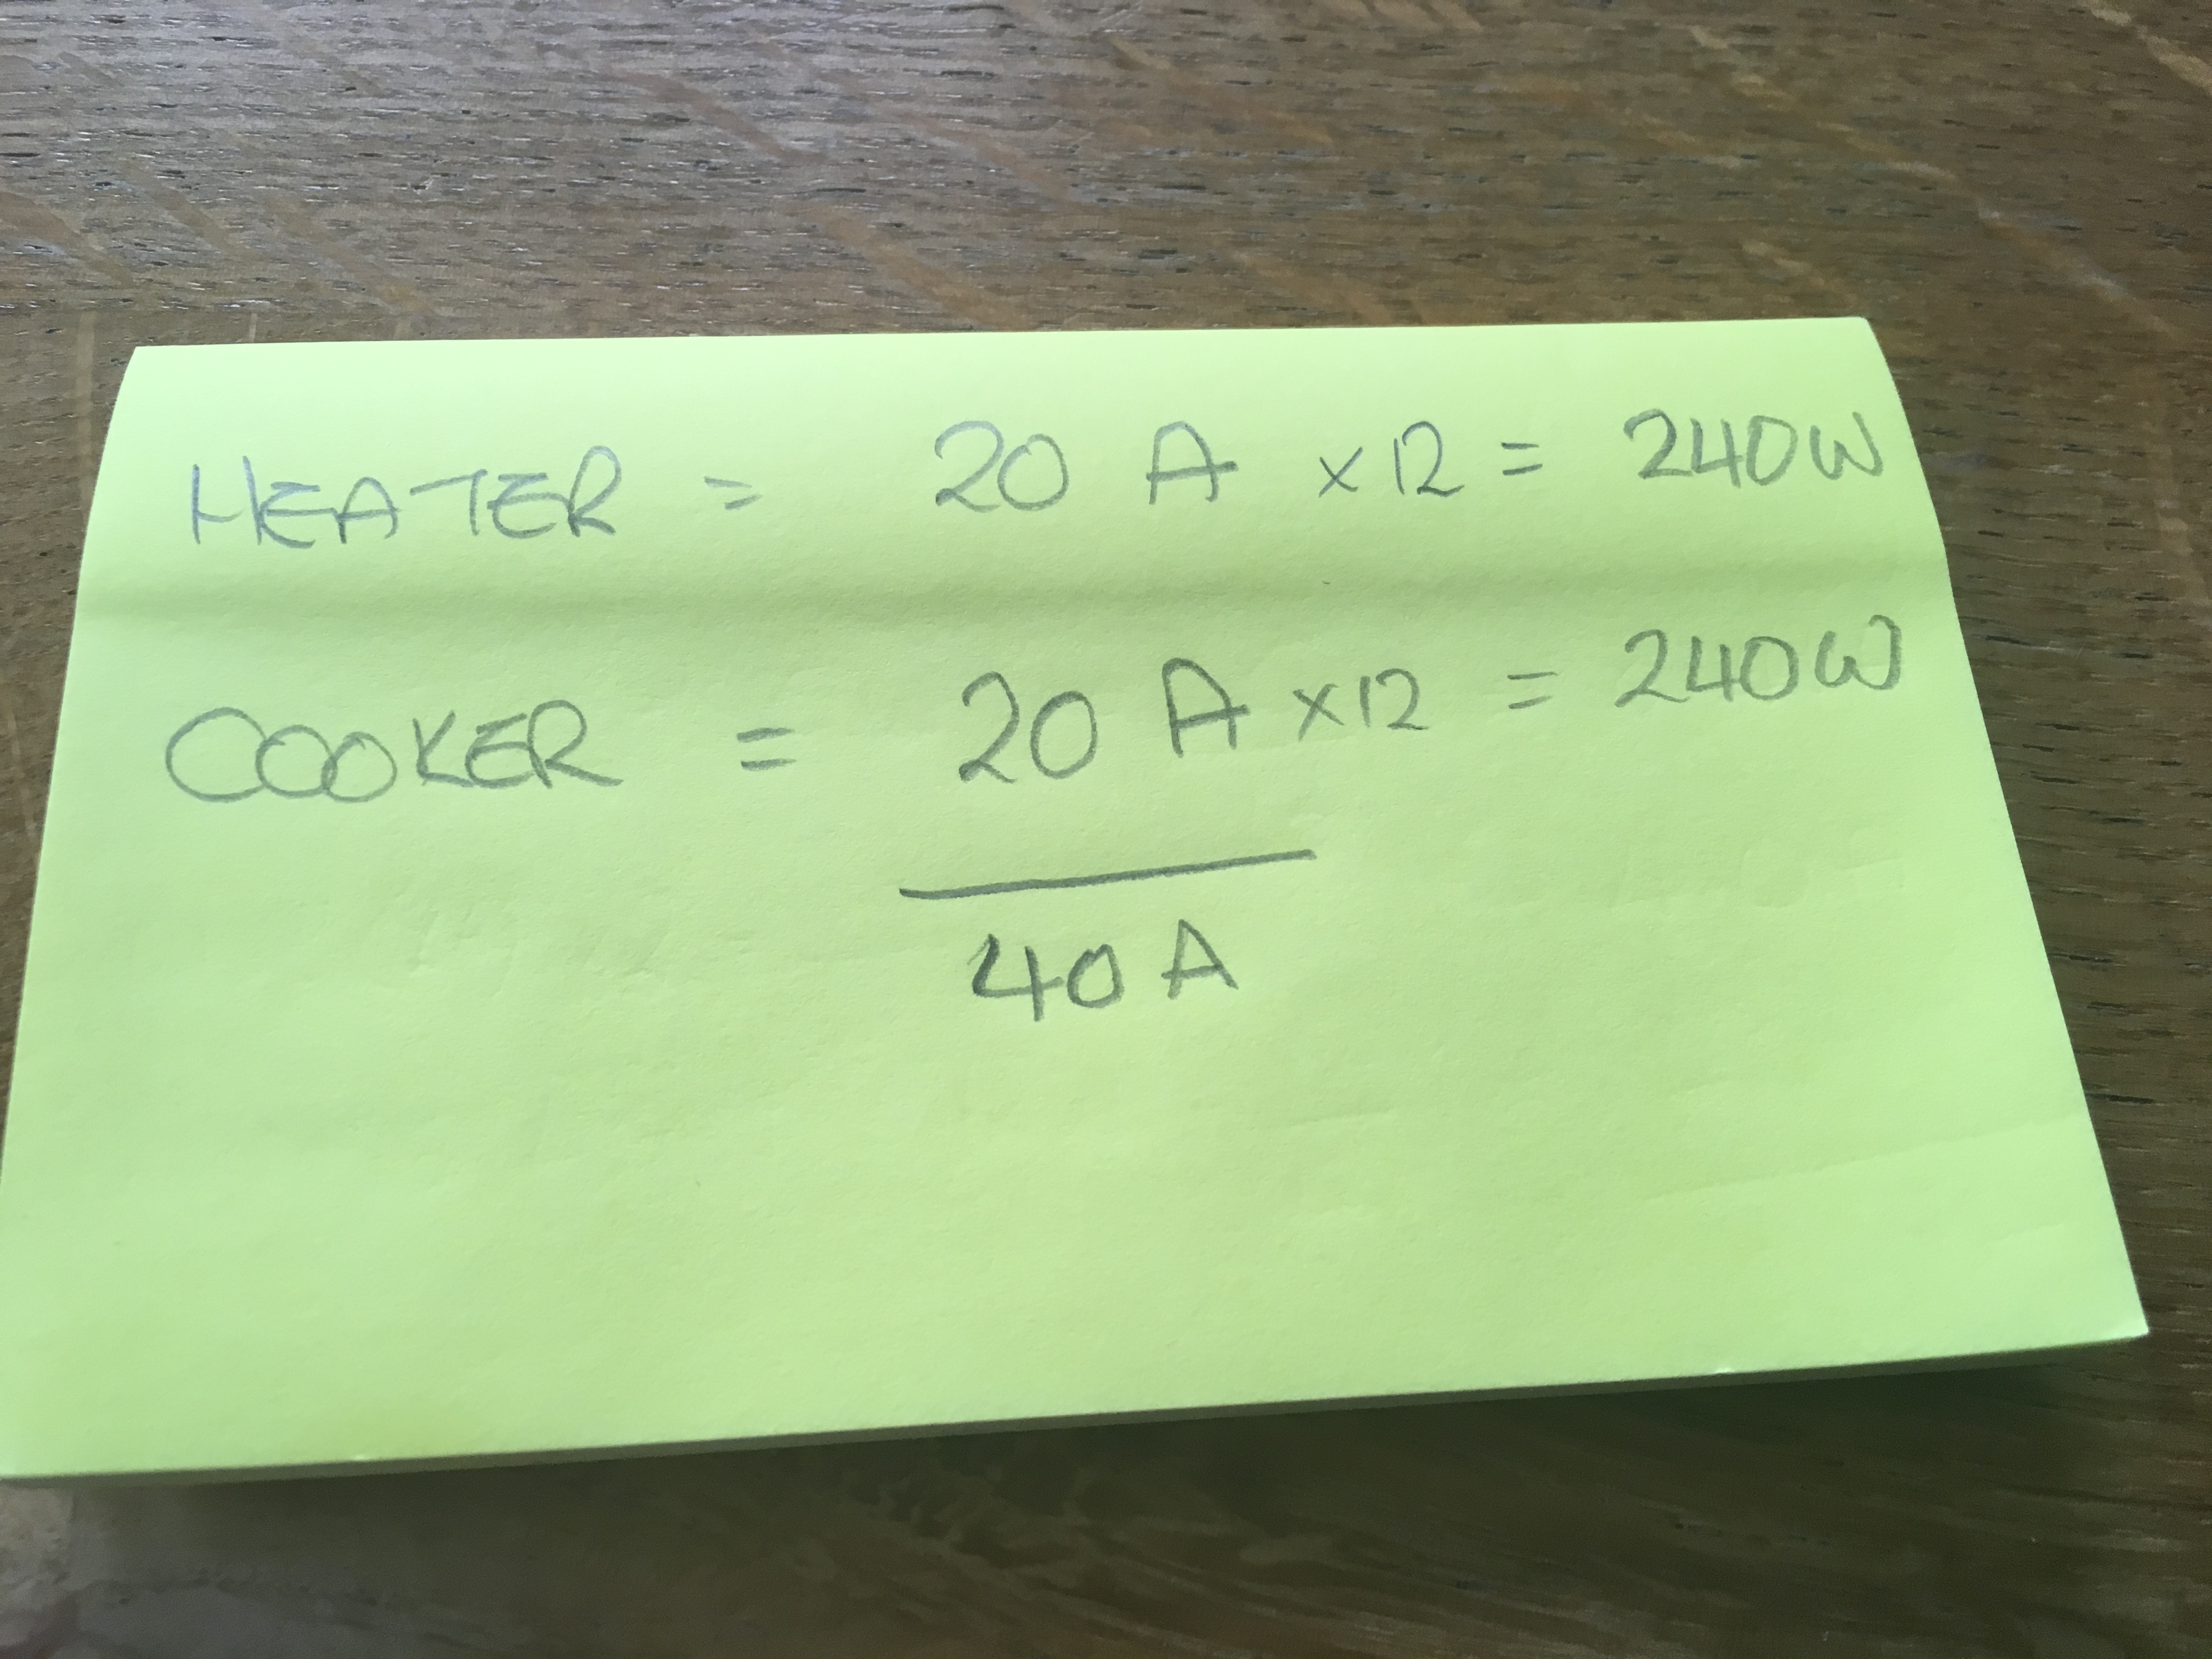 HEATER = 20 A x 12 = 240W
COOKER = 20 A x 12 = 240W
40 A